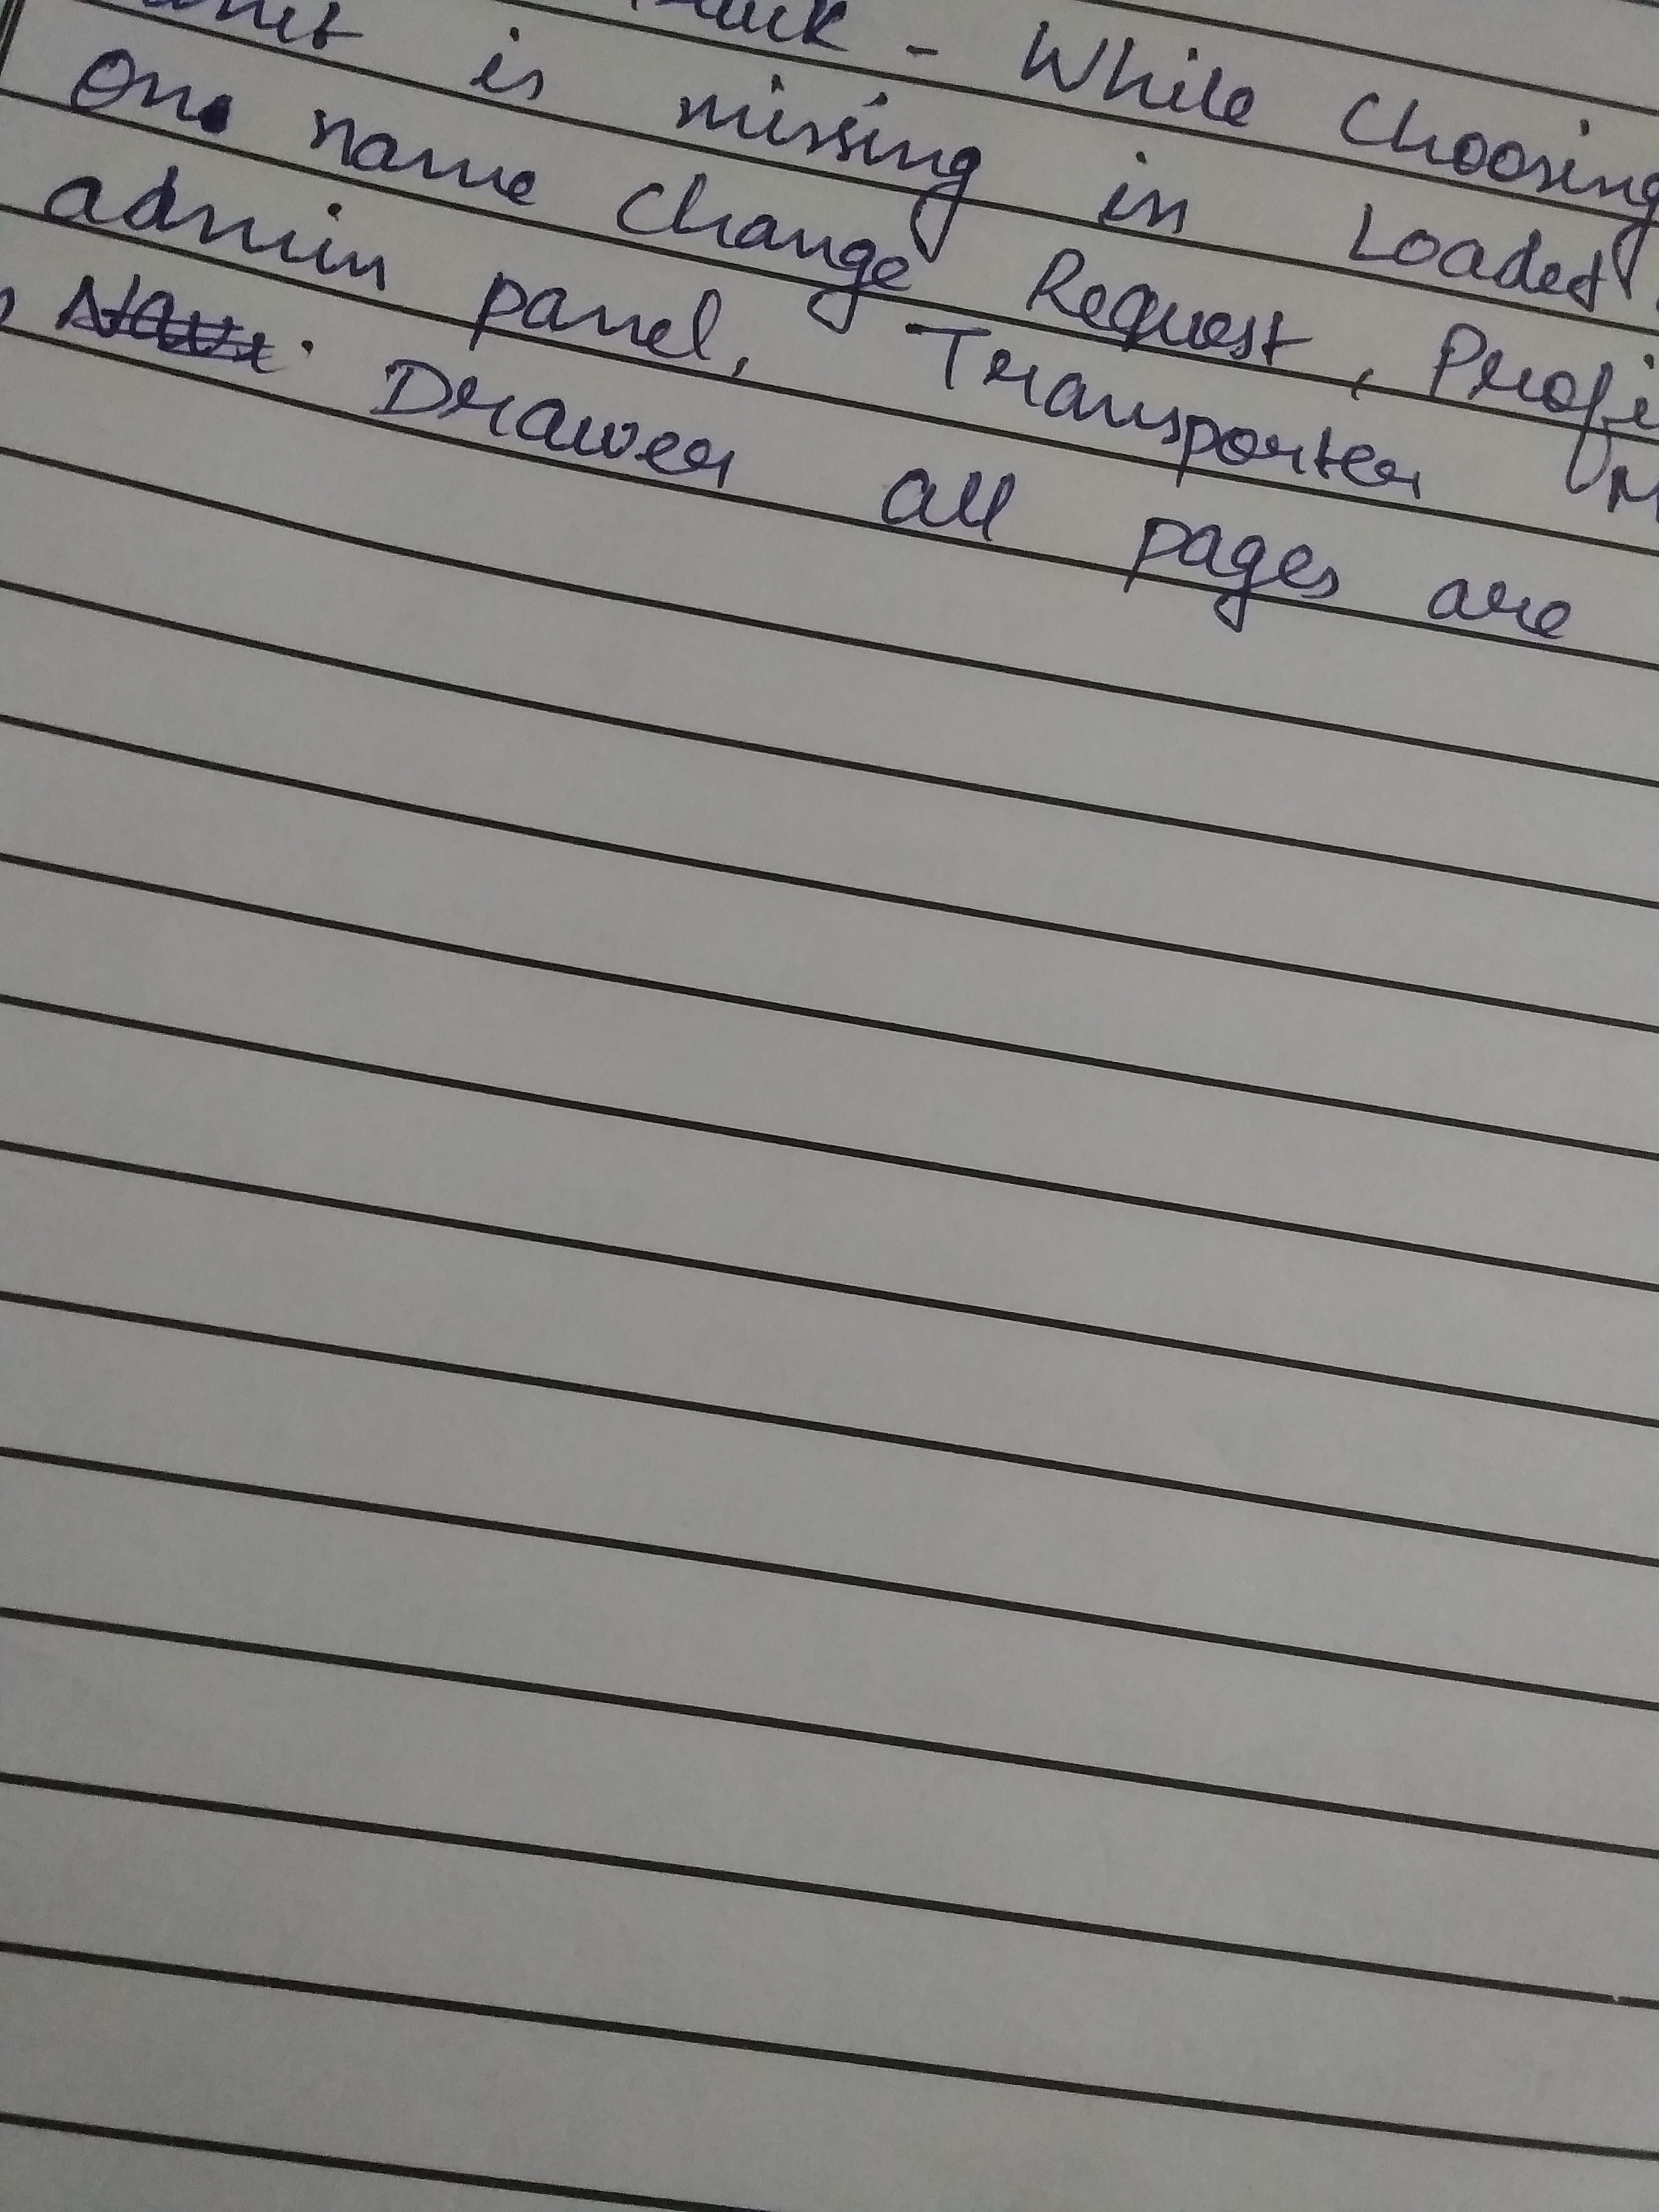 - While Choosing
is missing in Loaded
On name change Request, Profi
admin panel, Transporter
Drawer all pages are